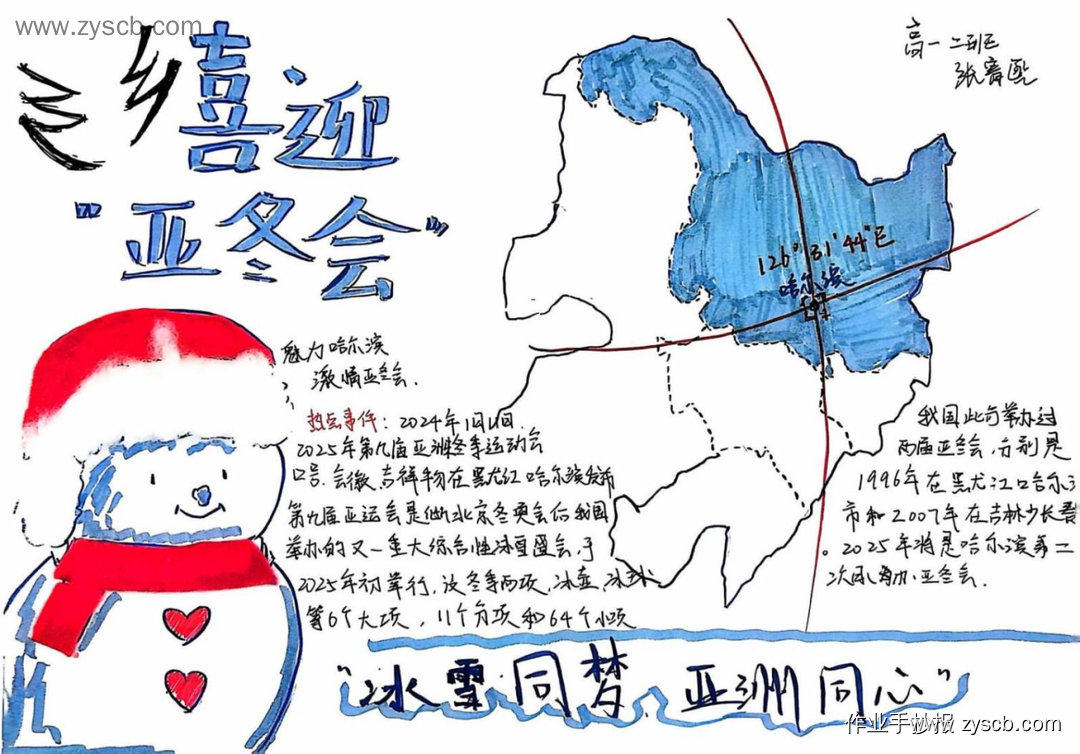 www.zyscb.com
乡喜迎
"亚冬会"
高一 二班
126°31′44″E
哈尔滨
魅力哈尔滨
激情亚冬会.
热点事件: 2024年1月11日.
2025年第九届亚洲冬季运动会
口号.会徽.吉祥物在黑龙江哈尔滨发布
第九届亚运会是继北京冬奥会后我国
举办的又一重大综合性冰雪盛会.于
2025年初举行,设冬季两项.冰壶.冰球
等6个大项, 11个分项和64个小项
我国此前举办过
两届亚冬会,分别是
1996年在黑龙江哈尔滨
市和2007年在吉林长春
。2025年将是哈尔滨第二
次承办.亚冬会.
"冰雪同梦 亚洲同心"
作业手抄报 zyscb.com